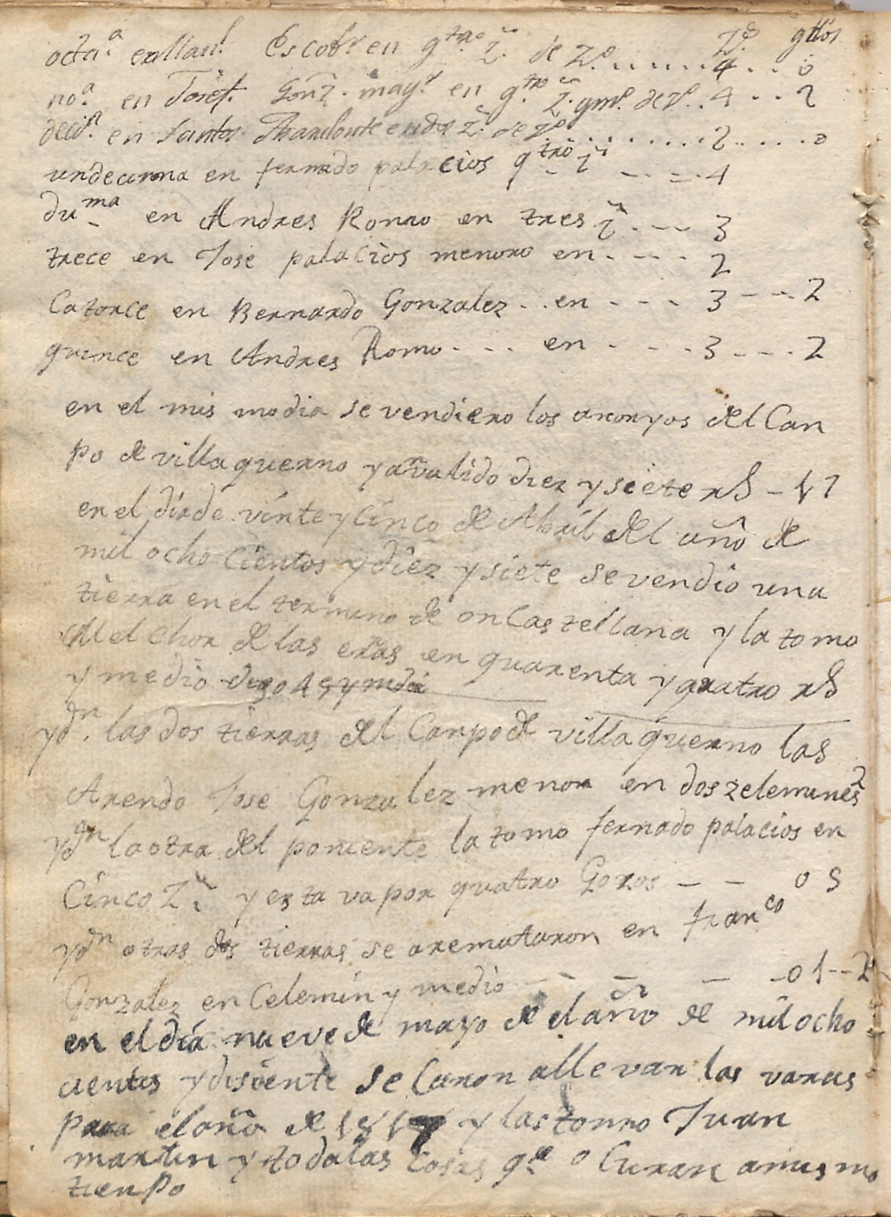 octaª en Manl. Escobr en qtro Zs. de Zo ....... 4 .. 0
Zs qtllos
noª en Josef. Gonz. mayr en qtro Zs. ymo. de Zo.. 4 .. 2
decª en Santos en dos Zs. de Zo ....... 2 ..... 0
undecima en fernado palacios qtro Zs - - = - 4
duma en Andres Romo en tres Zs. - - - 3
trece en Jose palacios menoro en - - - - 2
Catorce en Bernardo Gonzalez - . en - - - 3 - - - 2
quince en Andres Romo - - - en - - - 3 - - - 2
en el mis mo dia se vendiero los aroryos del Can
po de villa querno y a valido diez y siete rs - 17
en el dia de vinte y Cinco de Abril del año de
mil ocho Cientos y diez y siete se vendio una
tierra en el termino de on Castellana y la tomo
Melchor de las eras en quarenta y quatro rs
y medio digo 45 y mdi
ydn. las dos tierras del Canpo de villa querno las
Arendo Jose Gonzalez menor en dos zelemines 2
ydn la otra del poniente la tomo fernado palacios en
Cinco Zs y esta va por quatro Goros - - 0 5
ydn otras dos tierras se aremataron en franco
Gonzalez en Celemin y medio - - - - 0 1 - - 2
en el dia nueve de mayo de el año de mil ocho
cientos y disiente se Caron alle var las varas
para el año de 1817 y las tomo Juan
martin y todalas Cosas qe o Curan amismo
tienpo